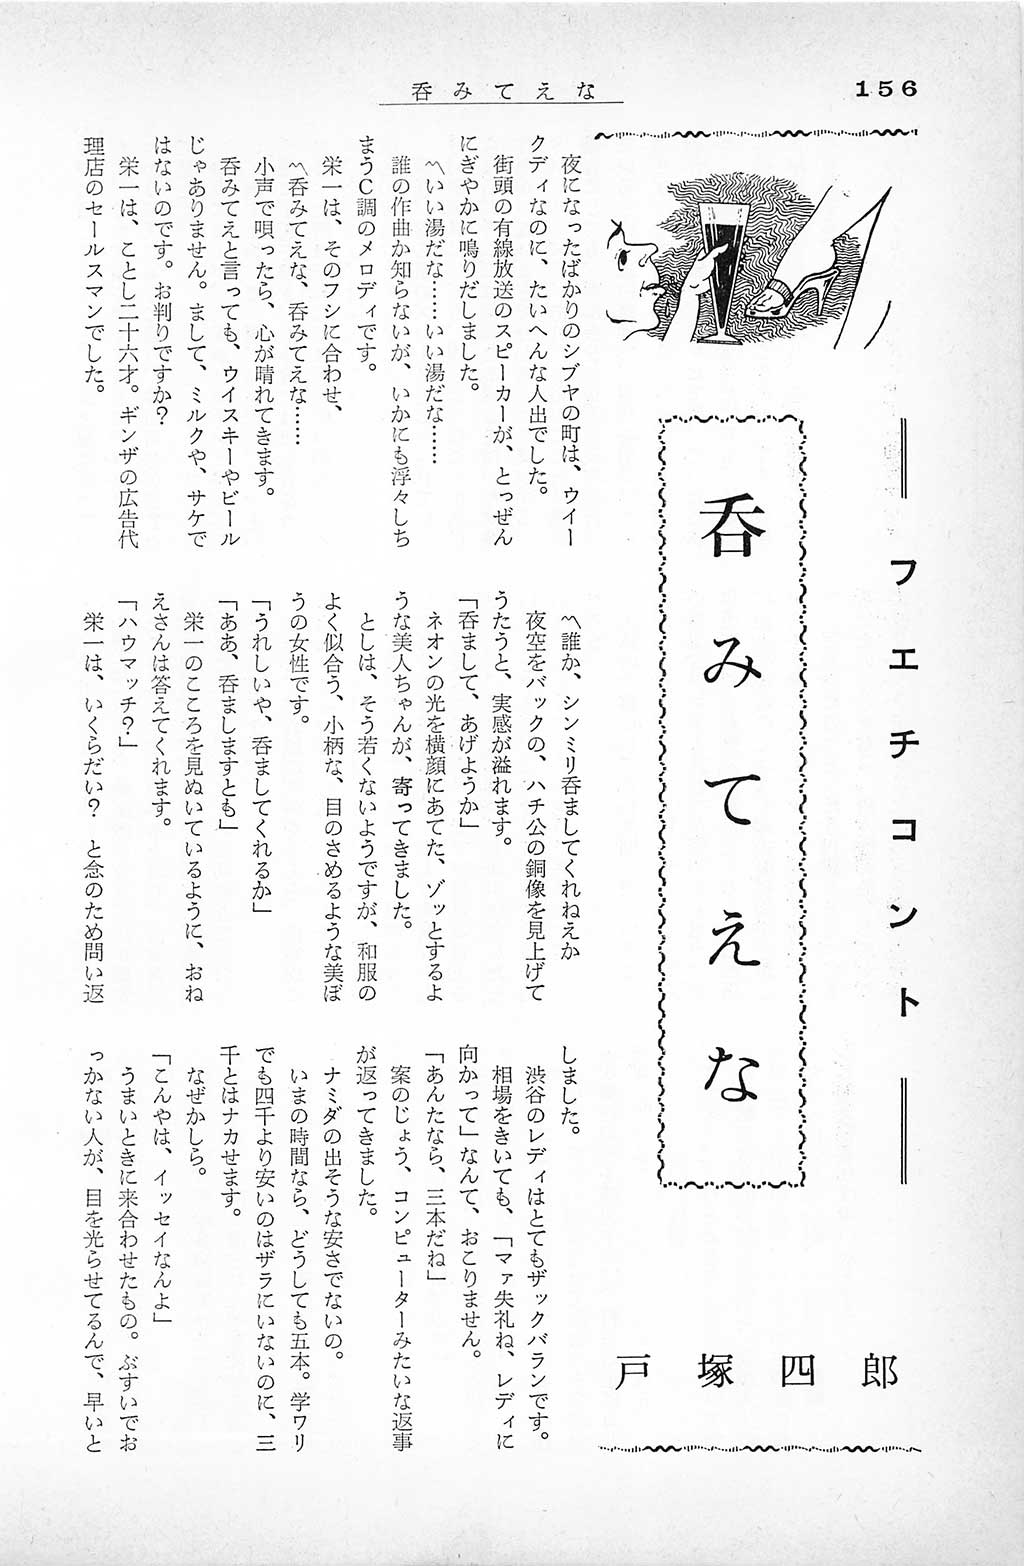 156
呑みてえな
フェチコント
呑みてえな
戸塚四郎
夜になったばかりのシブヤの町は、ウイー
クディなのに、たいへんな人出でした。
街頭の有線放送のスピーカーが、とっぜん
にぎやかに鳴りだしました。
〽いい湯だな……いい湯だな……
誰の作曲か知らないが、いかにも浮々しち
まうC調のメロディです。
栄一は、そのフシに合わせ、
〽呑みてえな、呑みてえな……
小声で唄ったら、心が晴れてきます。
呑みてえと言っても、ウイスキーやビール
じゃありません。まして、ミルクや、サケで
はないのです。お判りですか?
栄一は、ことし二十六才。ギンザの広告代
理店のセールスマンでした。
〽誰か、シンミリ呑ましてくれねえか
夜空をバックの、ハチ公の銅像を見上げて
うたうと、実感が溢れます。
「呑まして、あげようか」
ネオンの光を横顔にあてた、ゾッとするよ
うな美人ちゃんが、寄ってきました。
としは、そう若くないようですが、和服の
よく似合う、小柄な、目のさめるような美ぼ
うの女性です。
「うれしいや、呑ましてくれるか」
「ああ、呑ましますとも」
栄一のこころを見ぬいているように、おね
えさんは答えてくれます。
「ハウマッチ?」
栄一は、いくらだい? と念のため問い返
しました。
渋谷のレディはとてもザックバランです。
相場をきいても、「マァ失礼ね、レディに
向かって」なんて、おこりません。
「あんたなら、三本だね」
案のじょう、コンピューターみたいな返事
が返ってきました。
ナミダの出そうな安さでないの。
いまの時間なら、どうしても五本。学ワリ
でも四千より安いのはザラにいないのに、三
千とはナカせます。
なぜかしら。
「こんやは、イッセイなんよ」
うまいときに来合わせたもの。ぶすいでお
っかない人が、目を光らせてるんで、早いと